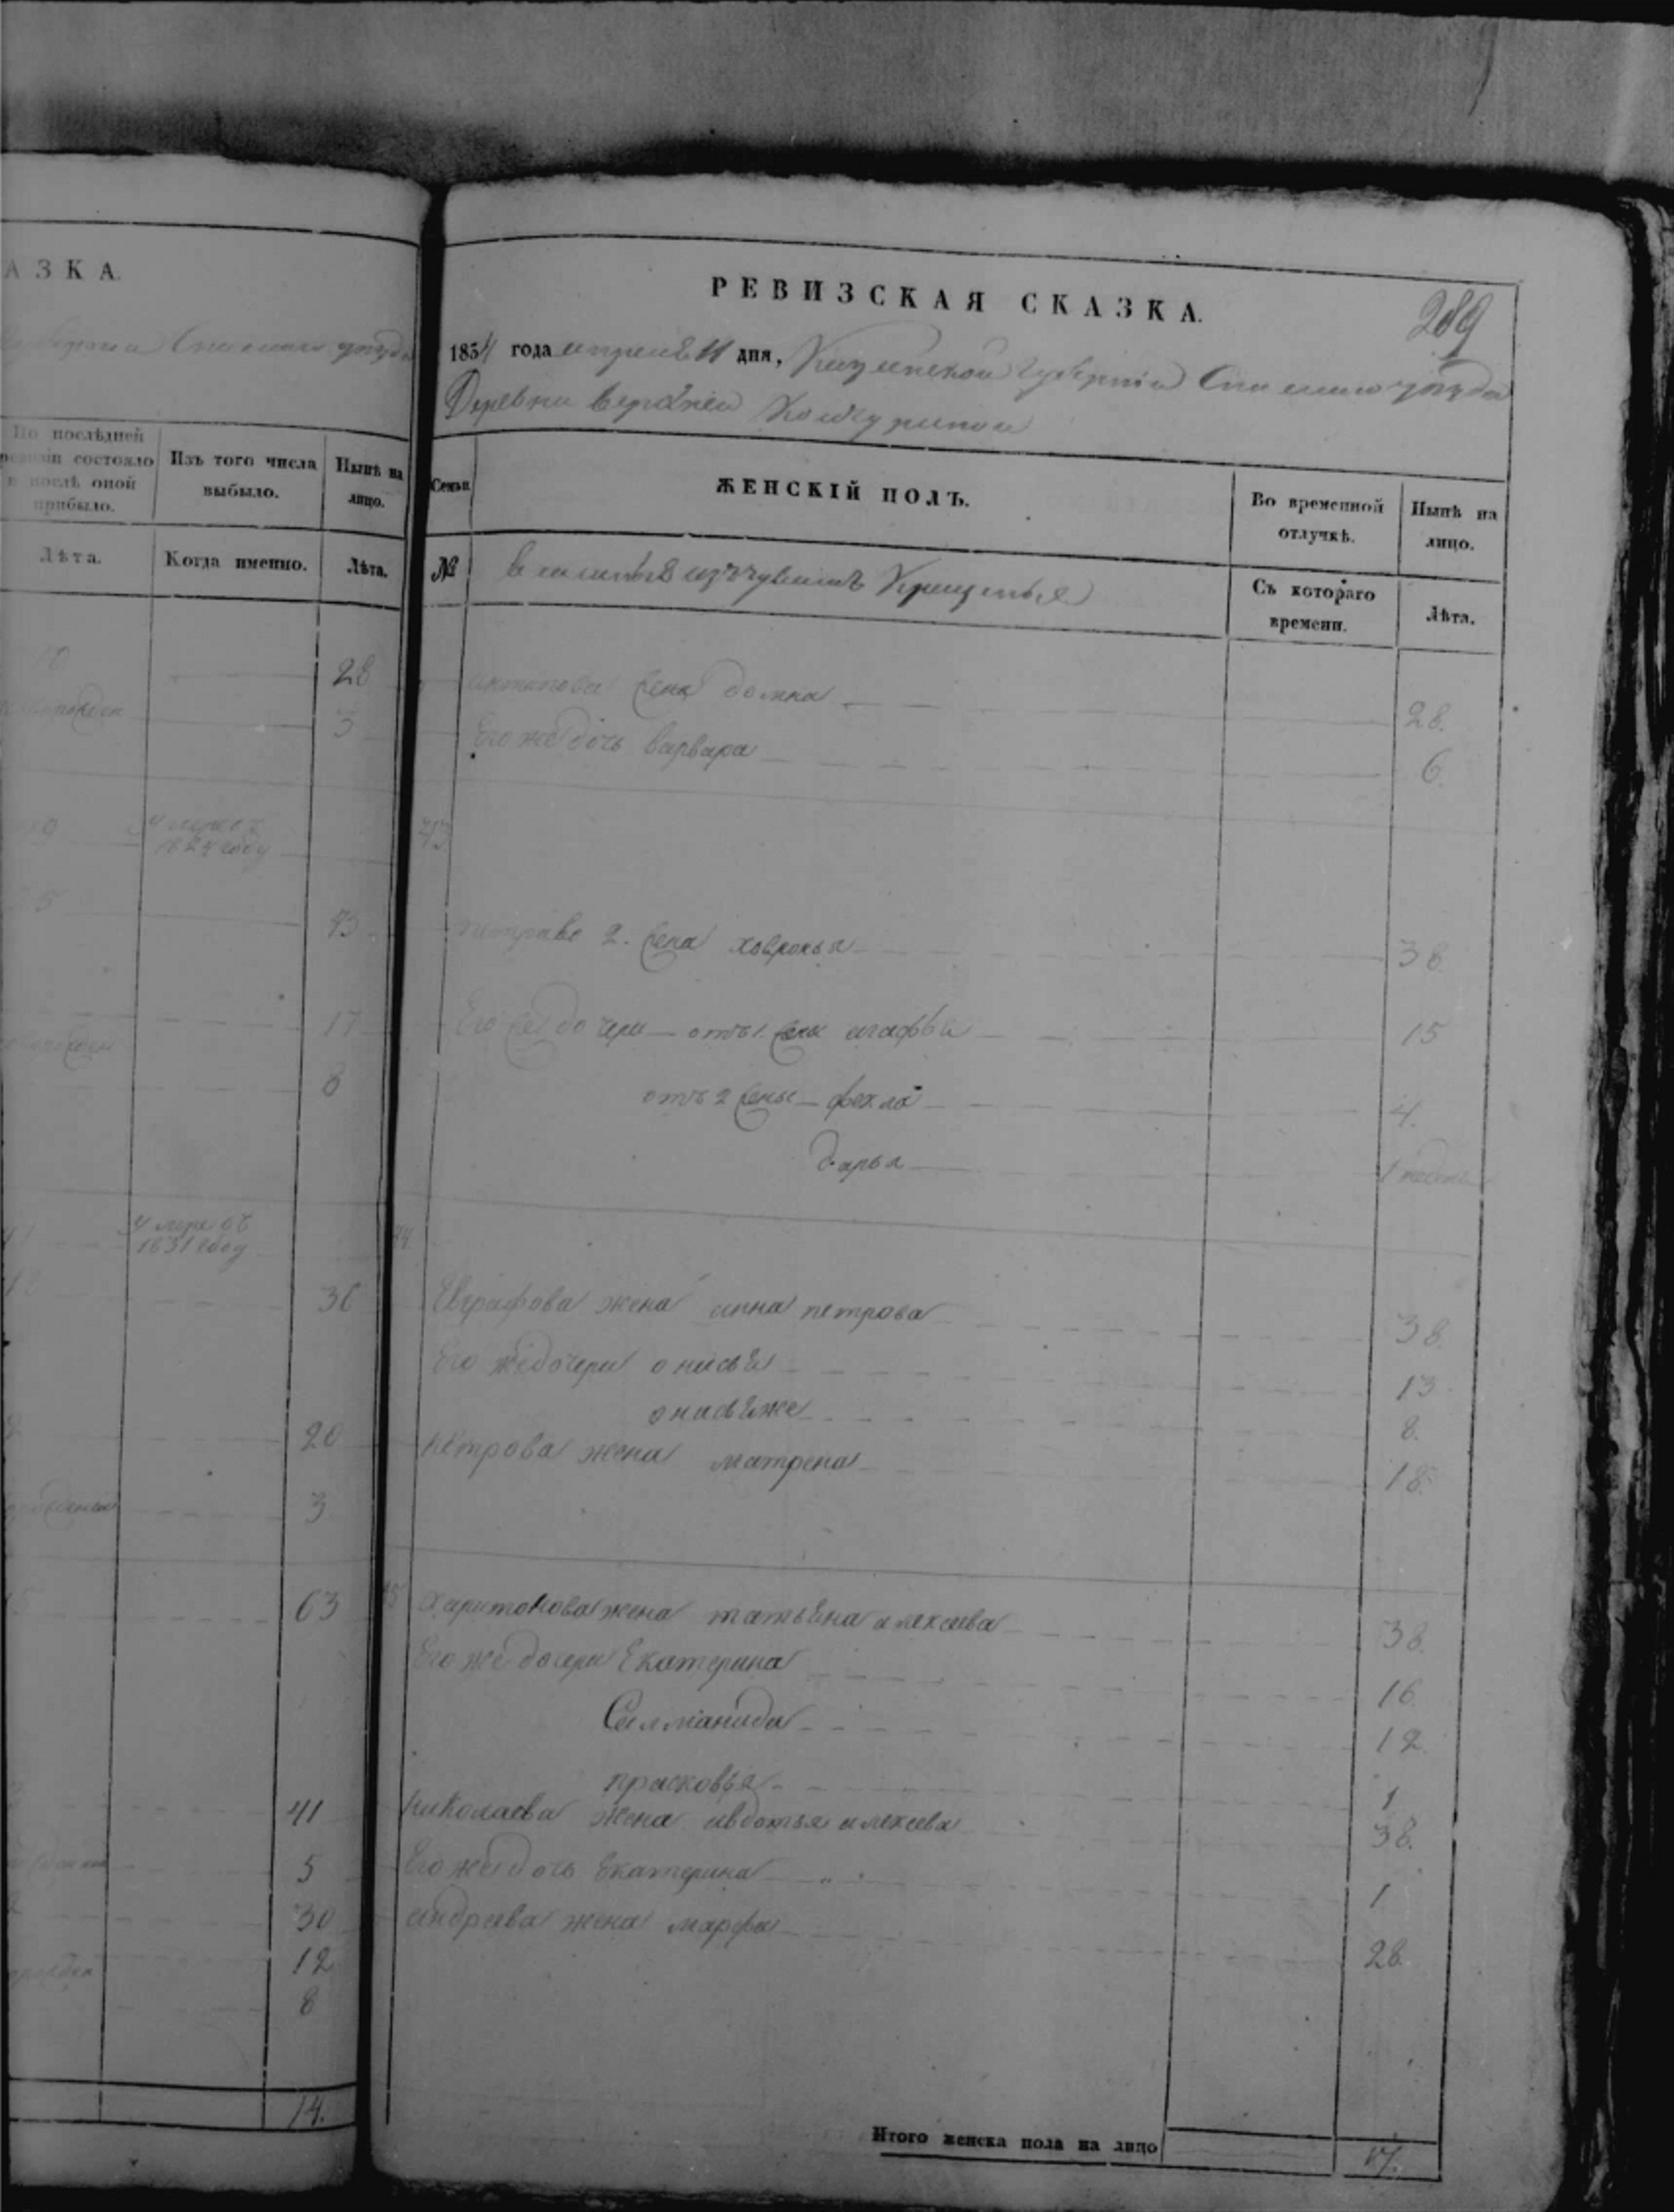 АЗКА.
По послѣдней
ревизіи состояло
и послѣ оной
прибыло.
Изъ того числа
выбыло.
Нынѣ на
лицо.
Лѣта.
Когда именно.
Лѣта.
28
3
1824 году
43
17
8
умре въ
1831 году
36
20
3
63
41
5
30
12
8
14.
РЕВИЗСКАЯ СКАЗКА.
289
1854 года апреля 11 дня, Казанской губернiи Спаскаго уѣзда
Деревни Верхней
Семьи
ЖЕНСКІЙ ПОЛЪ.
Во временной
отлучкѣ.
Нынѣ на
лицо.
№
изъ чувашъ
Съ котораго
времени.
Лѣта.
антипова жена домна 28.
Его же дочь варвара 6.
43
2. жена ховронья 38
Его же дочери отъ 1. жены агафья 15
отъ 2 жены фекла 4.
дарья 1
44
Евграфова жена анна петрова 38.
Его же дочери онисья 13
онисья же 8.
петрова жена матрена 18.
45 харитонова жена татьяна алексеева 38.
Его же дочери Екатерина 16.
12.
прасковья 1
николаева жена авдотья алексеева 38.
Его же дочь Екатерина 1
андреева жена марфа 28.
Итого женска пола на лицо 17.